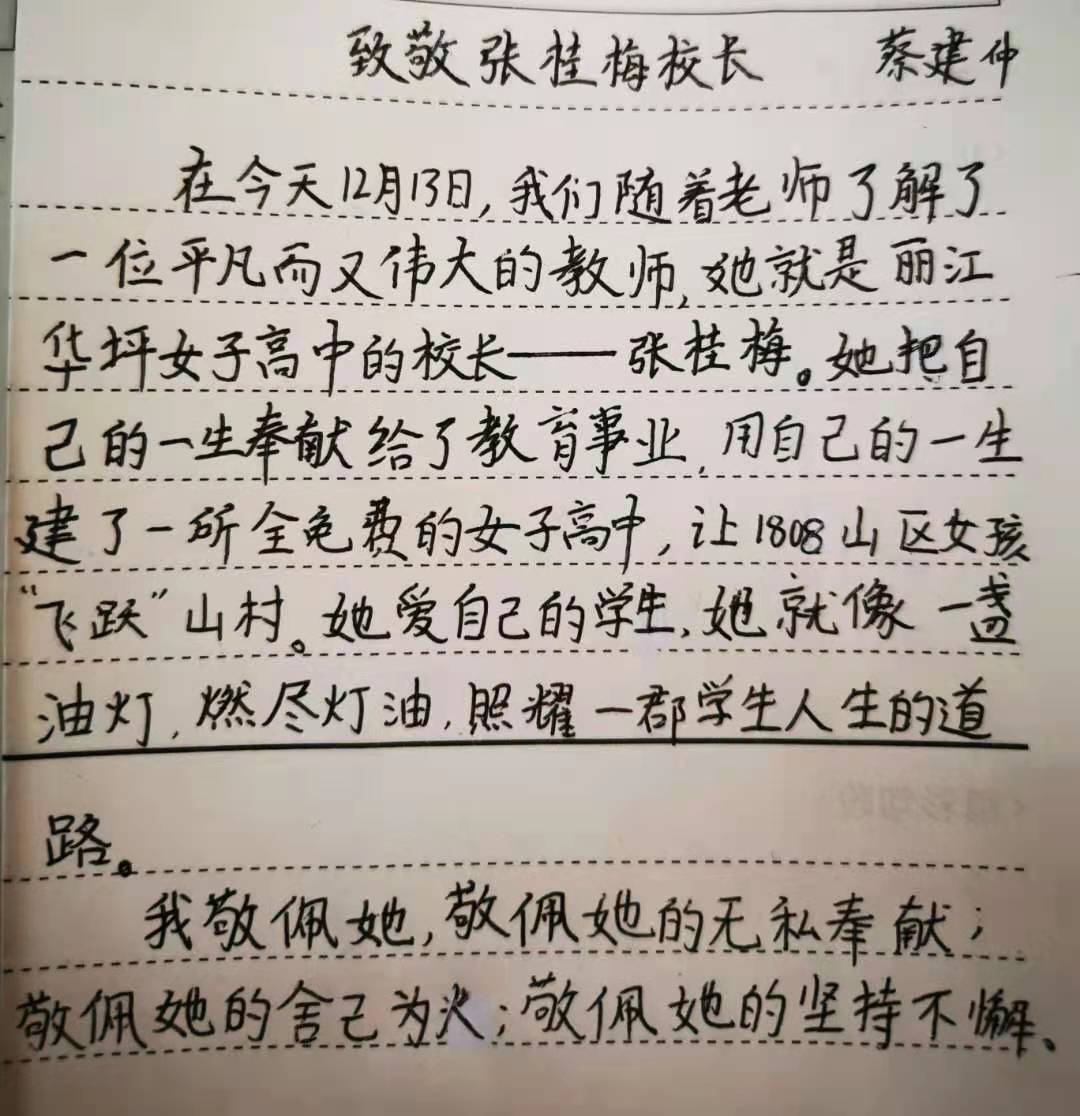 致敬张桂梅校长 蔡建仲
在今天12月13日,我们随着老师了解了
一位平凡而又伟大的教师,她就是丽江
华坪女子高中的校长——张桂梅。她把自
己的一生奉献给了教育事业,用自己的一生
建了一所全免费的女子高中,让1808山区女孩
“飞跃”山村。她爱自己的学生,她就像一盏
油灯,燃尽灯油,照耀一郡学生人生的道
路。
我敬佩她,敬佩她的无私奉献;
敬佩她的舍己为火;敬佩她的坚持不懈、